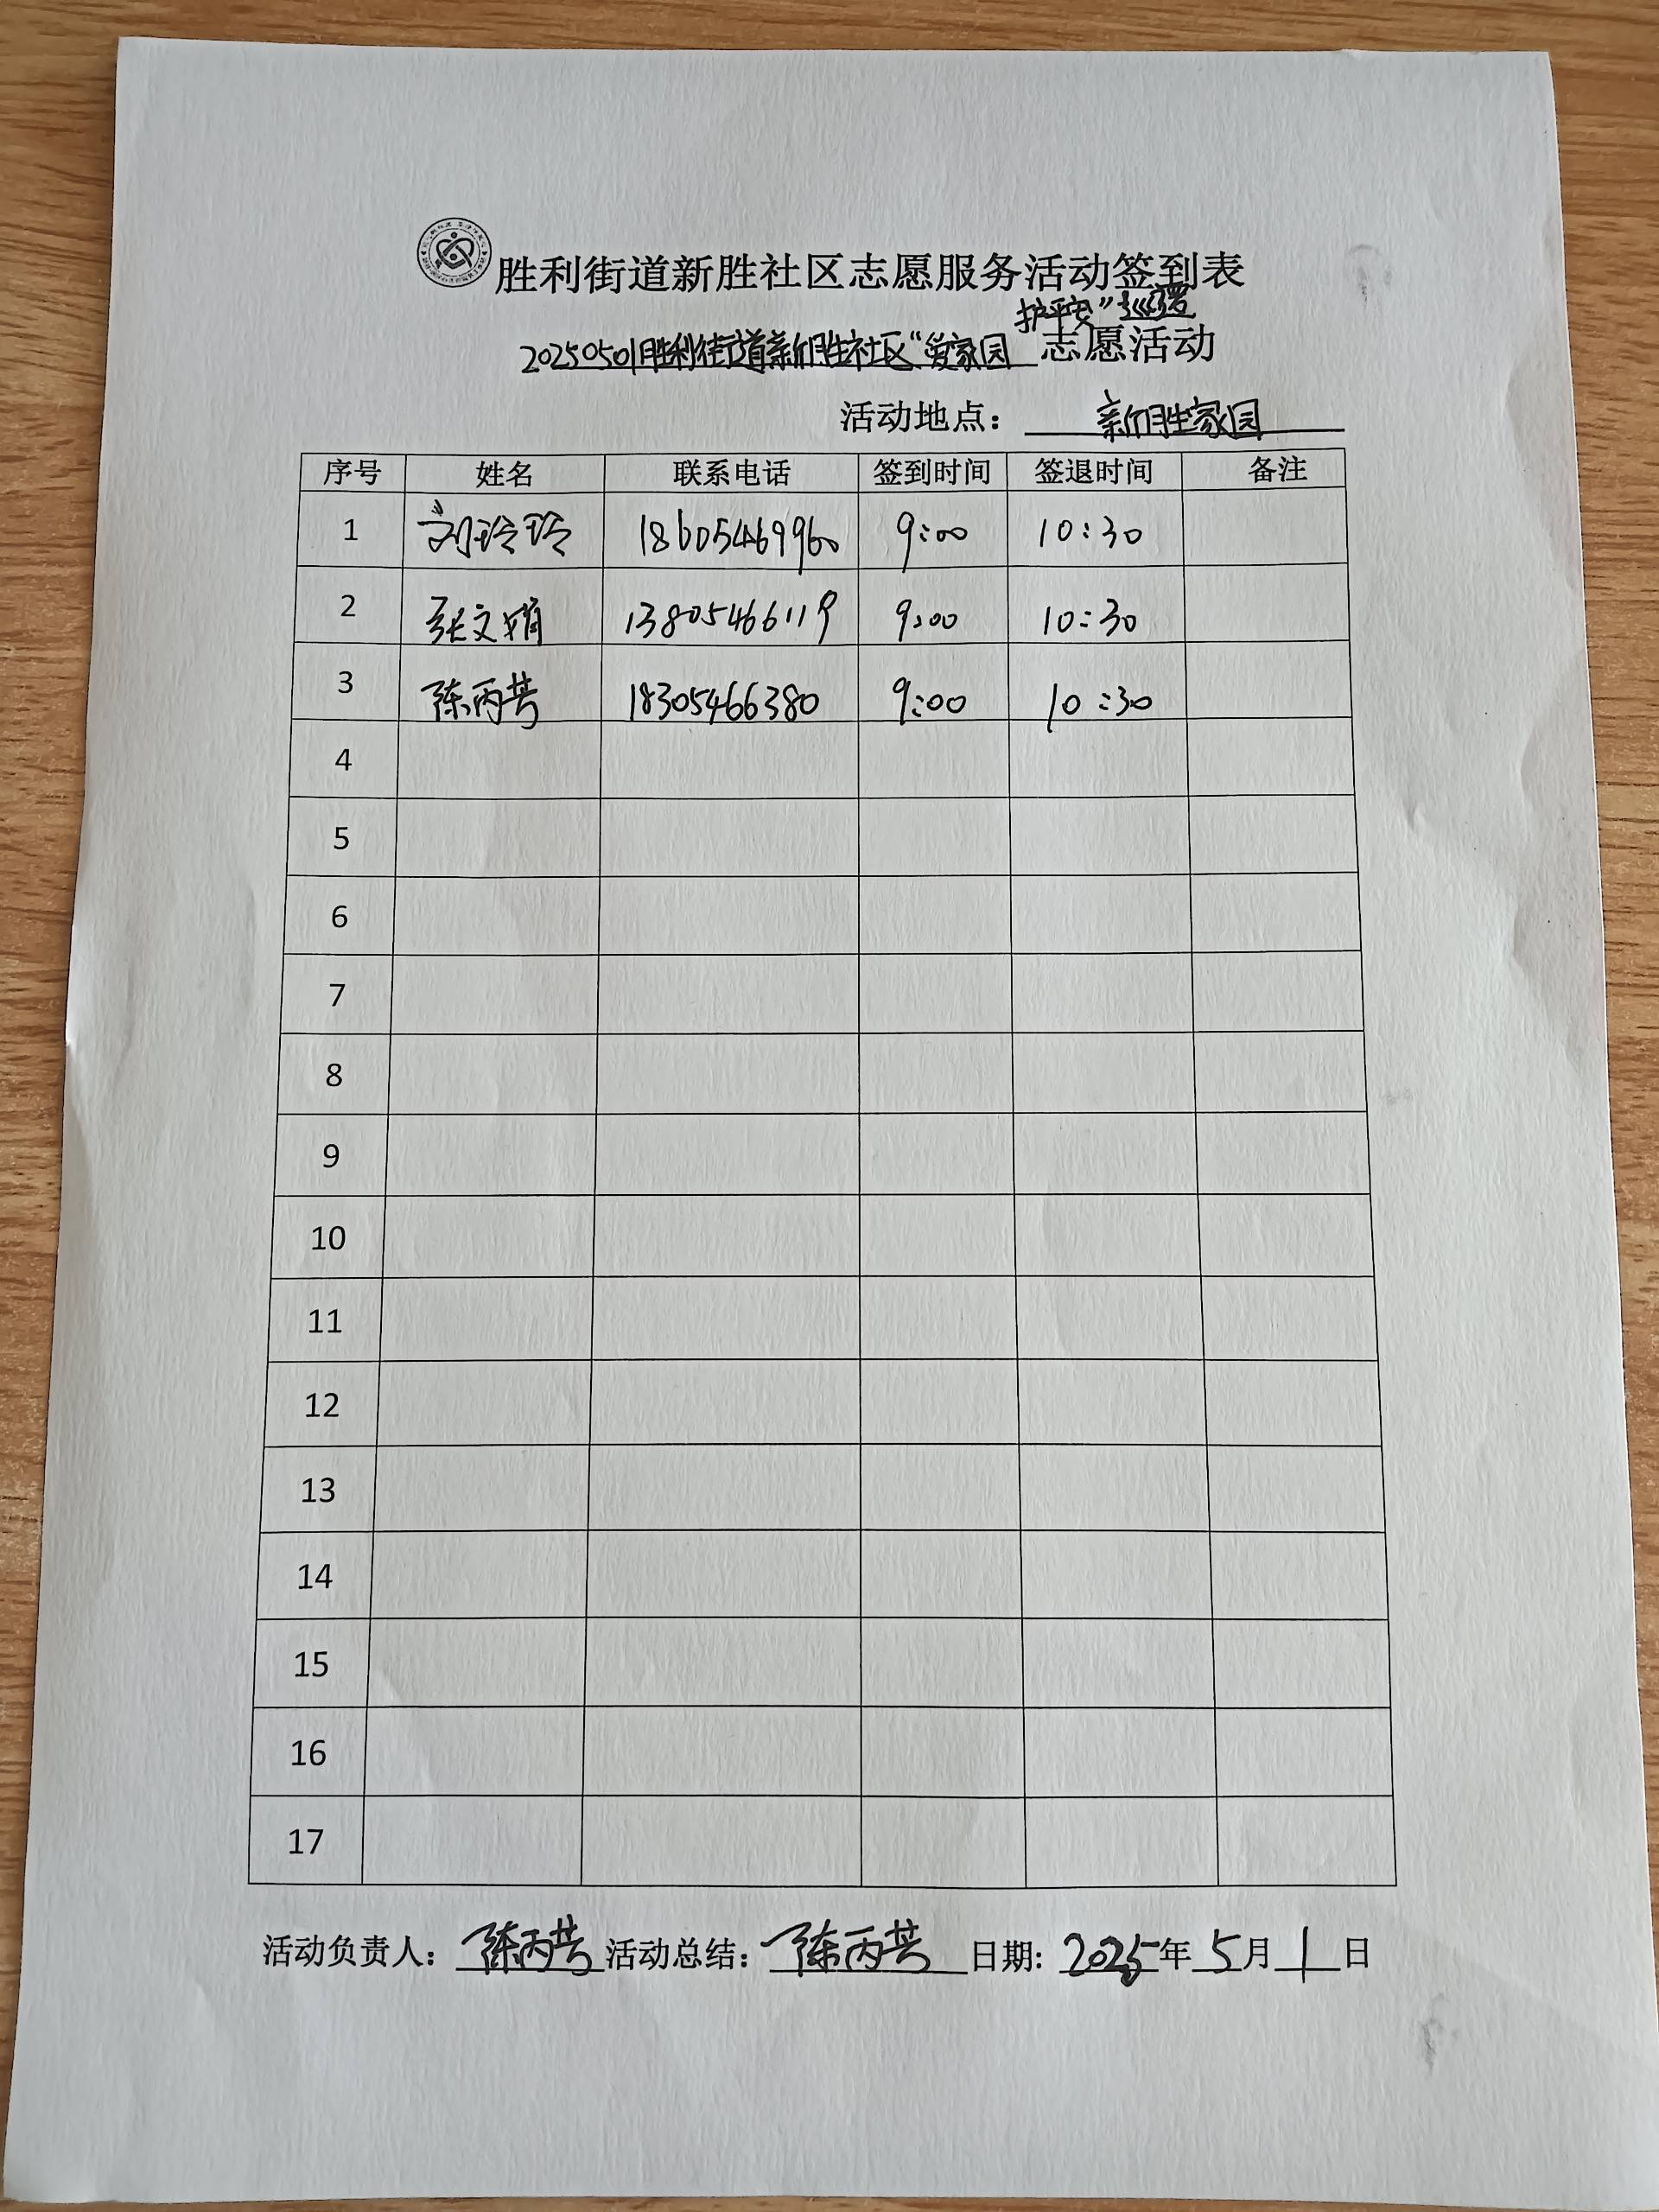 胜利街道新胜社区志愿服务活动签到表
护平安”巡逻
20250501胜利街道新胜社区“爱家园 志愿活动
活动地点： 新胜家园
序号 姓名 联系电话 签到时间 签退时间 备注
1 刘玲玲 18605469960 9:00 10:30
2 张文娟 13805466119 9:00 10:30
3 陈丙芸 18305466380 9:00 10:30
4
5
6
7
8
9
10
11
12
13
14
15
16
17
活动负责人： 陈丙芸 活动总结： 陈丙芸 日期: 2025年 5月 1日